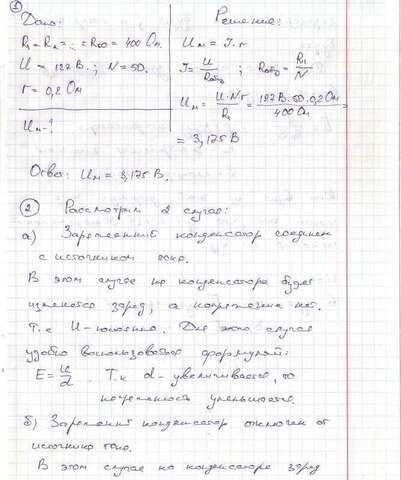 ①
Дано:
R₁ = R₂ = ... = R₅₀ = 400 Ом.
U = 127 В.; N = 50.
r = 0,2 Ом
Uм - ?
Решение:
Uм = J·r
J = U/Rобщ ; Rобщ = R₁/N
Uм = U·Nr/R₁ = 127 В·50·0,2 Ом/400 Ом =
= 3,175 В
Ответ: Uм = 3,175 В.
② Рассмотрим 2 случая:
а) Заряженный конденсатор соединен
с источником тока.
В этом случае на конденсаторе будет
изменятся заряд, а напряжение нет.
Т.к U - постоянно. Для этого случая
удобно воспользоваться формулой:
E = U/d. Т.к d - увеличивается, то
напряженность уменьшается.
б) Заряженный конденсатор отключен от
источника тока.
В этом случае на конденсаторе заряд